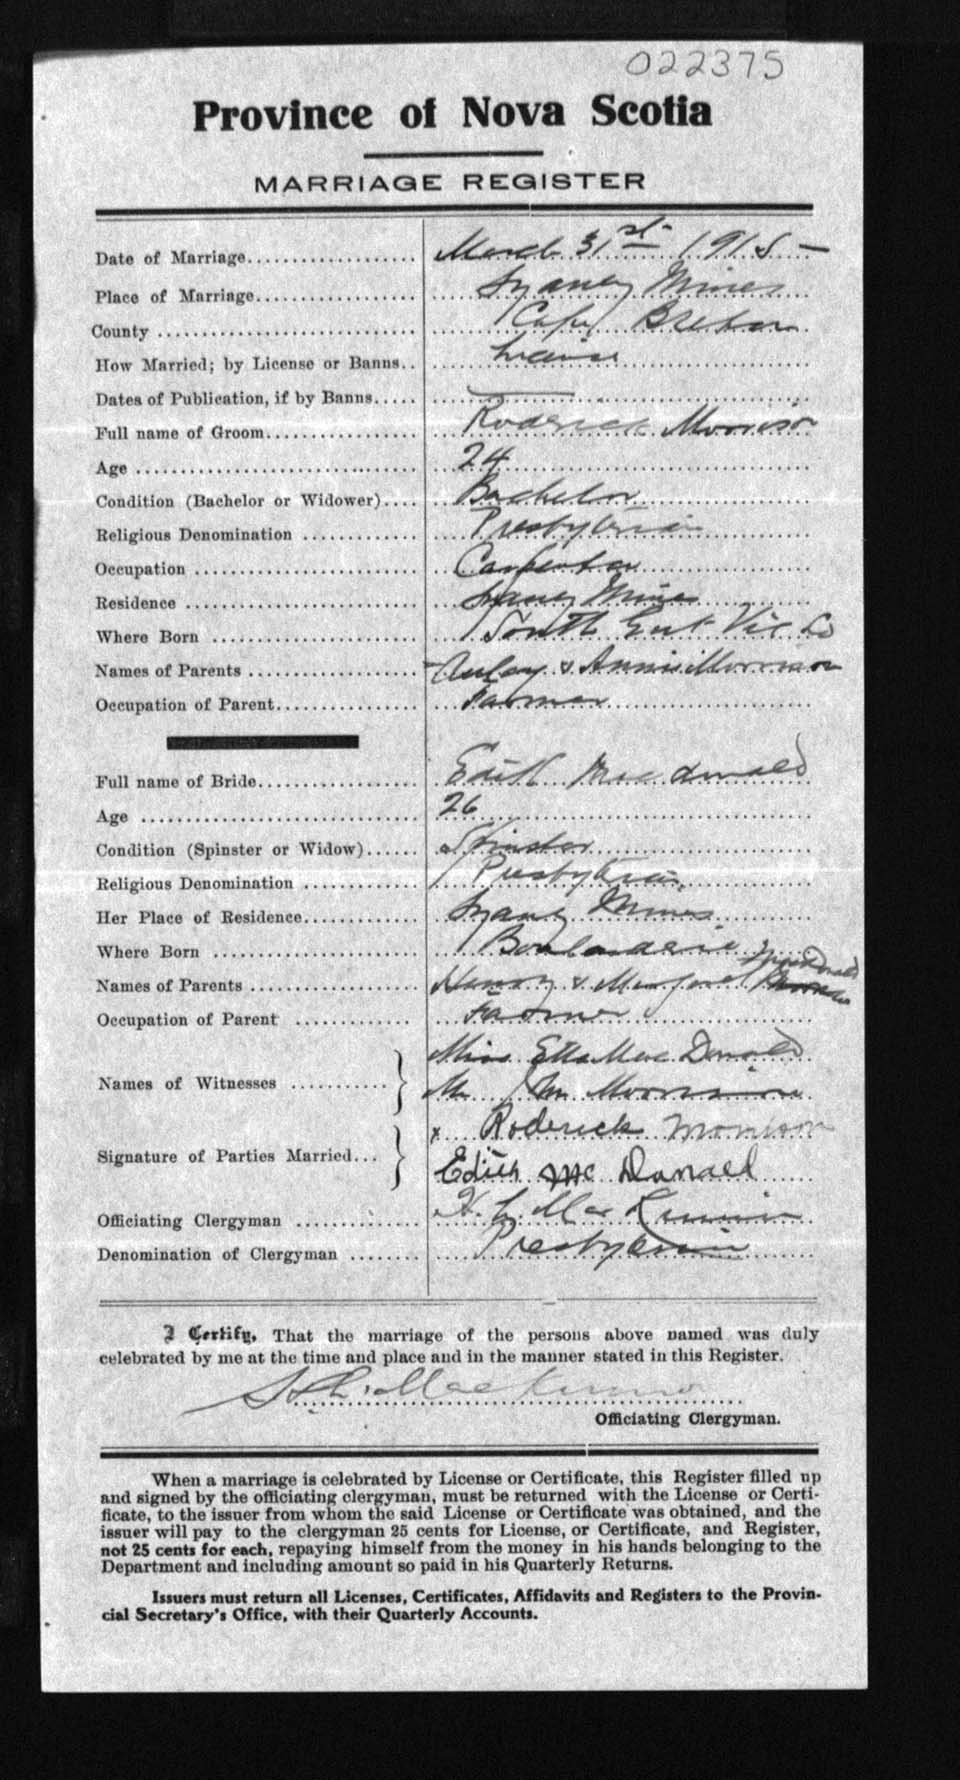 022375
Province of Nova Scotia
MARRIAGE REGISTER
Date of Marriage.................... March 31st 1915
Place of Marriage................... Sydney Mines
County .............................. Cape Breton
How Married; by License or Banns.. License
Dates of Publication, if by Banns..... —
Full name of Groom.................. Roderick Morrison
Age .................................. 24
Condition (Bachelor or Widower).... Bachelor
Religious Denomination ............. Presbyterian
Occupation .......................... Carpenter
Residence ........................... Sydney Mines
Where Born ......................... South Gut Vic Co
Names of Parents .................... Auley & Annie Morrison
Occupation of Parent................. Farmer
Full name of Bride................... Edith MacDonald
Age .................................. 26
Condition (Spinster or Widow)...... Spinster
Religious Denomination ............. Presbyterian
Her Place of Residence.............. Sydney Mines
Where Born ......................... Boularderie
Names of Parents .................... Henry & Margaret MacDonald
Occupation of Parent ............... Farmer
Names of Witnesses ........... Miss Etta MacDonald
Mr Morrison
Signature of Parties Married... x Roderick Morrison
Edith McDonald
Officiating Clergyman ............... MacKinnon
Denomination of Clergyman ........ Presbyterian
I Certify, That the marriage of the persons above named was duly
celebrated by me at the time and place and in the manner stated in this Register.
MacKinnon
Officiating Clergyman.
When a marriage is celebrated by License or Certificate, this Register filled up
and signed by the officiating clergyman, must be returned with the License or Certi-
ficate, to the issuer from whom the said License or Certificate was obtained, and the
issuer will pay to the clergyman 25 cents for License, or Certificate, and Register,
not 25 cents for each, repaying himself from the money in his hands belonging to the
Department and including amount so paid in his Quarterly Returns.
Issuers must return all Licenses, Certificates, Affidavits and Registers to the Provin-
cial Secretary's Office, with their Quarterly Accounts.